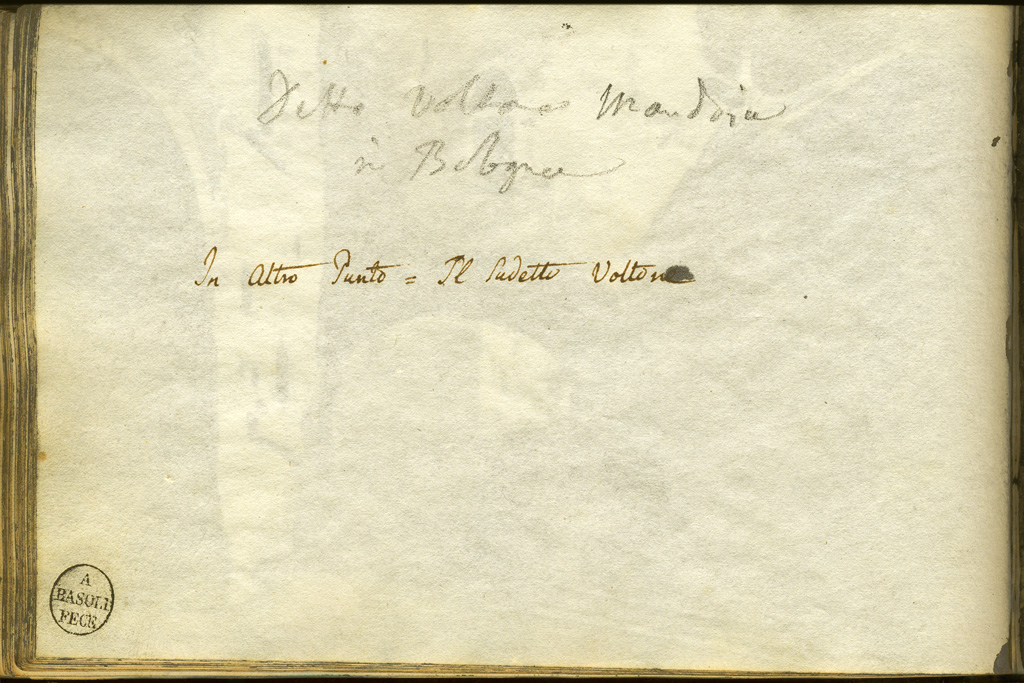 Detto Voltone Mandria
in Bologna
In Altro Punto = Il Sudetto Voltone
A
BASOLI
FECE